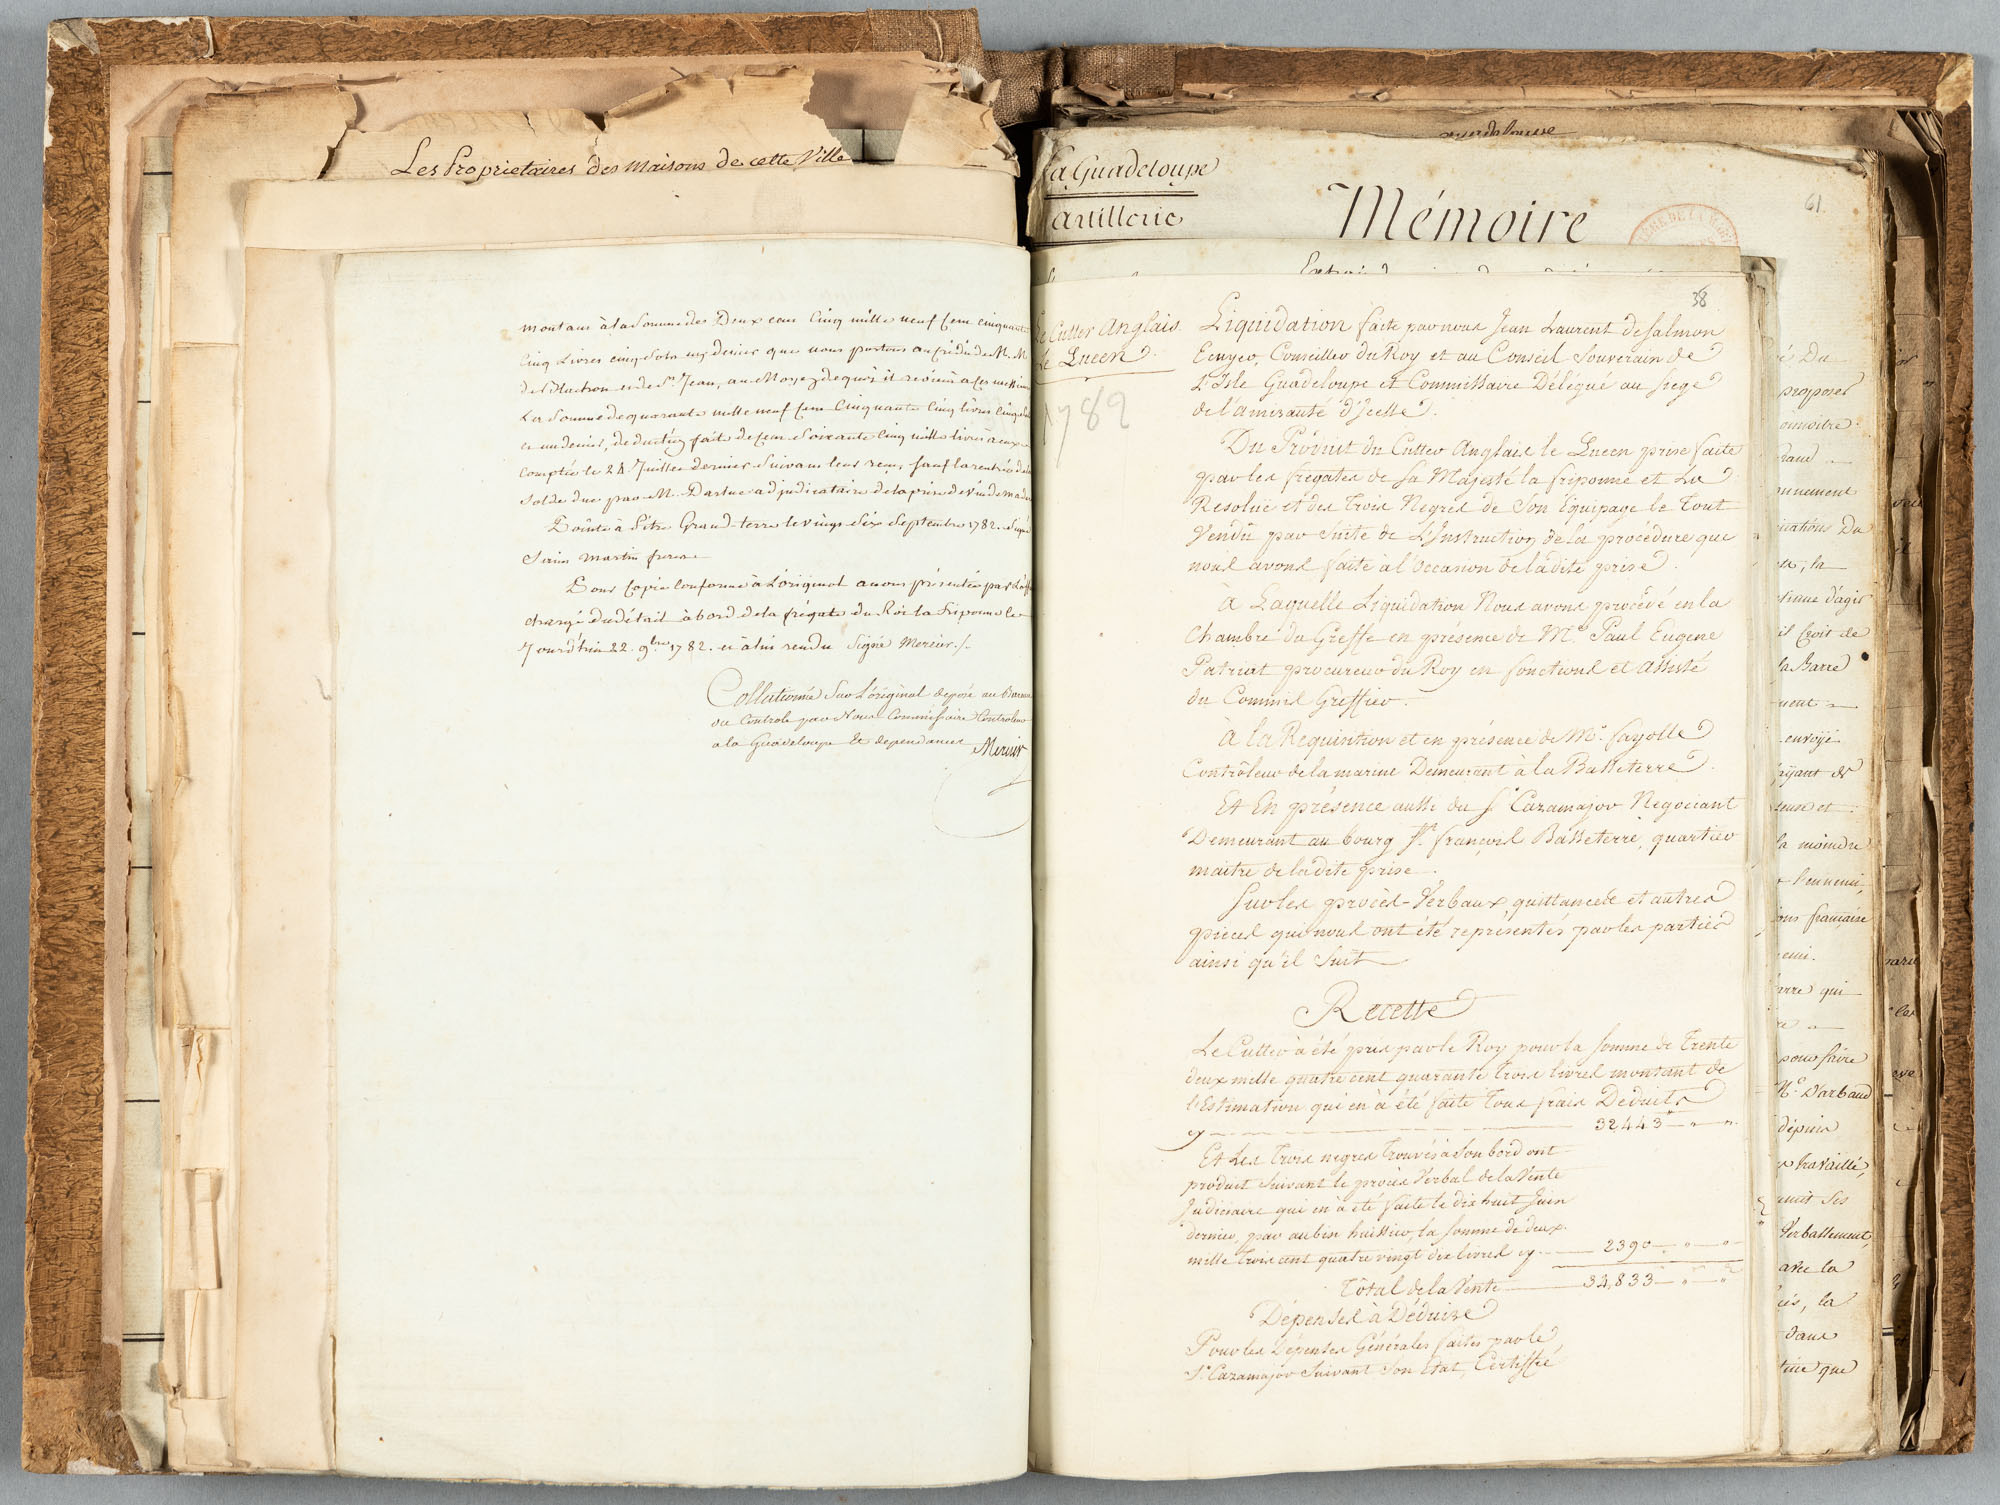 Les Proprietaires des maisons de cette Ville
montant à la Somme de Deux cent Cinq mille neuf Cent cinquante
Cinq Livres cinq Sols un denier que nous portons au crédit de M. M.
de l'Ruthon et de St Jean, au Moyen de quoi il revient à ces messieurs
La Somme de quarante mille neuf Cent Cinquante Cinq livres Cinq Sols
et un denier, déduction faite de Cent Soixante Cinq mille livres à eux
Comptée le 24 Juillet dernier Suivant leur reçu, Sauf la rentrée de la
Solde due par M. Darluc adjudicataire de la prise
Pointe à Pitre Grand-terre le vingt Six Septembre 1782. Signé
Saint Martin freres.
Pour Copie Conforme à L'original a nous présentée par L'off.
chargé du détail à bord de la frégate du Roi la friponne le
Jourd'hui 22. 9bre 1782. et à lui rendu Signé Mercier./.
Collationné Sur L'original deposé au Bureau
du Controle par Nous Commissaire Controleur
a la Guadeloupe et dependances Mercier
La Guadeloupe
artillerie
Mémoire
61
38
Le Cutter Anglais
le Queen
1782
Liquidation faite par nous Jean Laurent de Salmon
Ecuyer, Conseiller du Roy et au Conseil Souverain de
L'Isle Guadeloupe et Commissaire Délégué au Siege
de l'amirauté d'Icelle.
Du Produit du Cutter Anglais le Queen prise faite
par les frégates de Sa Majesté la friponne et La
Resolue et des Trois Negres de Son Equipage le Tout
Vendû par Suite de L'Instruction de la procédure que
nous avons faite a l'occasion de la dite prise.
à Laquelle Liquidation Nous avons procédé en la
Chambre du Greffe en présence de Me. Paul Eugene
Patriat procureur du Roy en fonctions et assisté
du Commis Greffier.
à la Requisition et en présence de Mr. fayolle
Contrôleur de la marine Demeurant à la Basseterre.
Et En présence aussi du Sr. Cazamajor Negociant
Demeurant au bourg St. françois Basseterre, quartier
maitre de la dite prise.
Sur les procès-Verbaux quittances et autres
pieces qui nous ont été représentés par les parties
ainsi qu'il Suit
Recette
Le Cutter à été pris par le Roy pour la Somme de Trente
deux mille quatre cent quarante trois livres montant de
l'Estimation qui en à été faite Tous frais Deduits
cy 32,443 " "
Et Les Trois negres trouvés à Son bord ont
produit Suivant le procès Verbal de la Vente
Judiciaire qui en à été faite le dix huit Juin
dernier, par aubin huissier, la Somme de deux
mille Trois cent quatre vingt dix livres cy 2390 " "
Tôtal de la Vente 34,833 " "
Dépenses à Déduire
Pour les Dépenses Générales faites par le
Sr. Cazamajor Suivant Son Etat, Certiffié
Du
proposer
d'agir
il Croit de
la Barre
envoyé
la moindre
l'ennemi,
française
qui
pour faire
Mr. Darbaud
depuis
travaillé,
Ses
Verballement,
avec la
la
dans
que